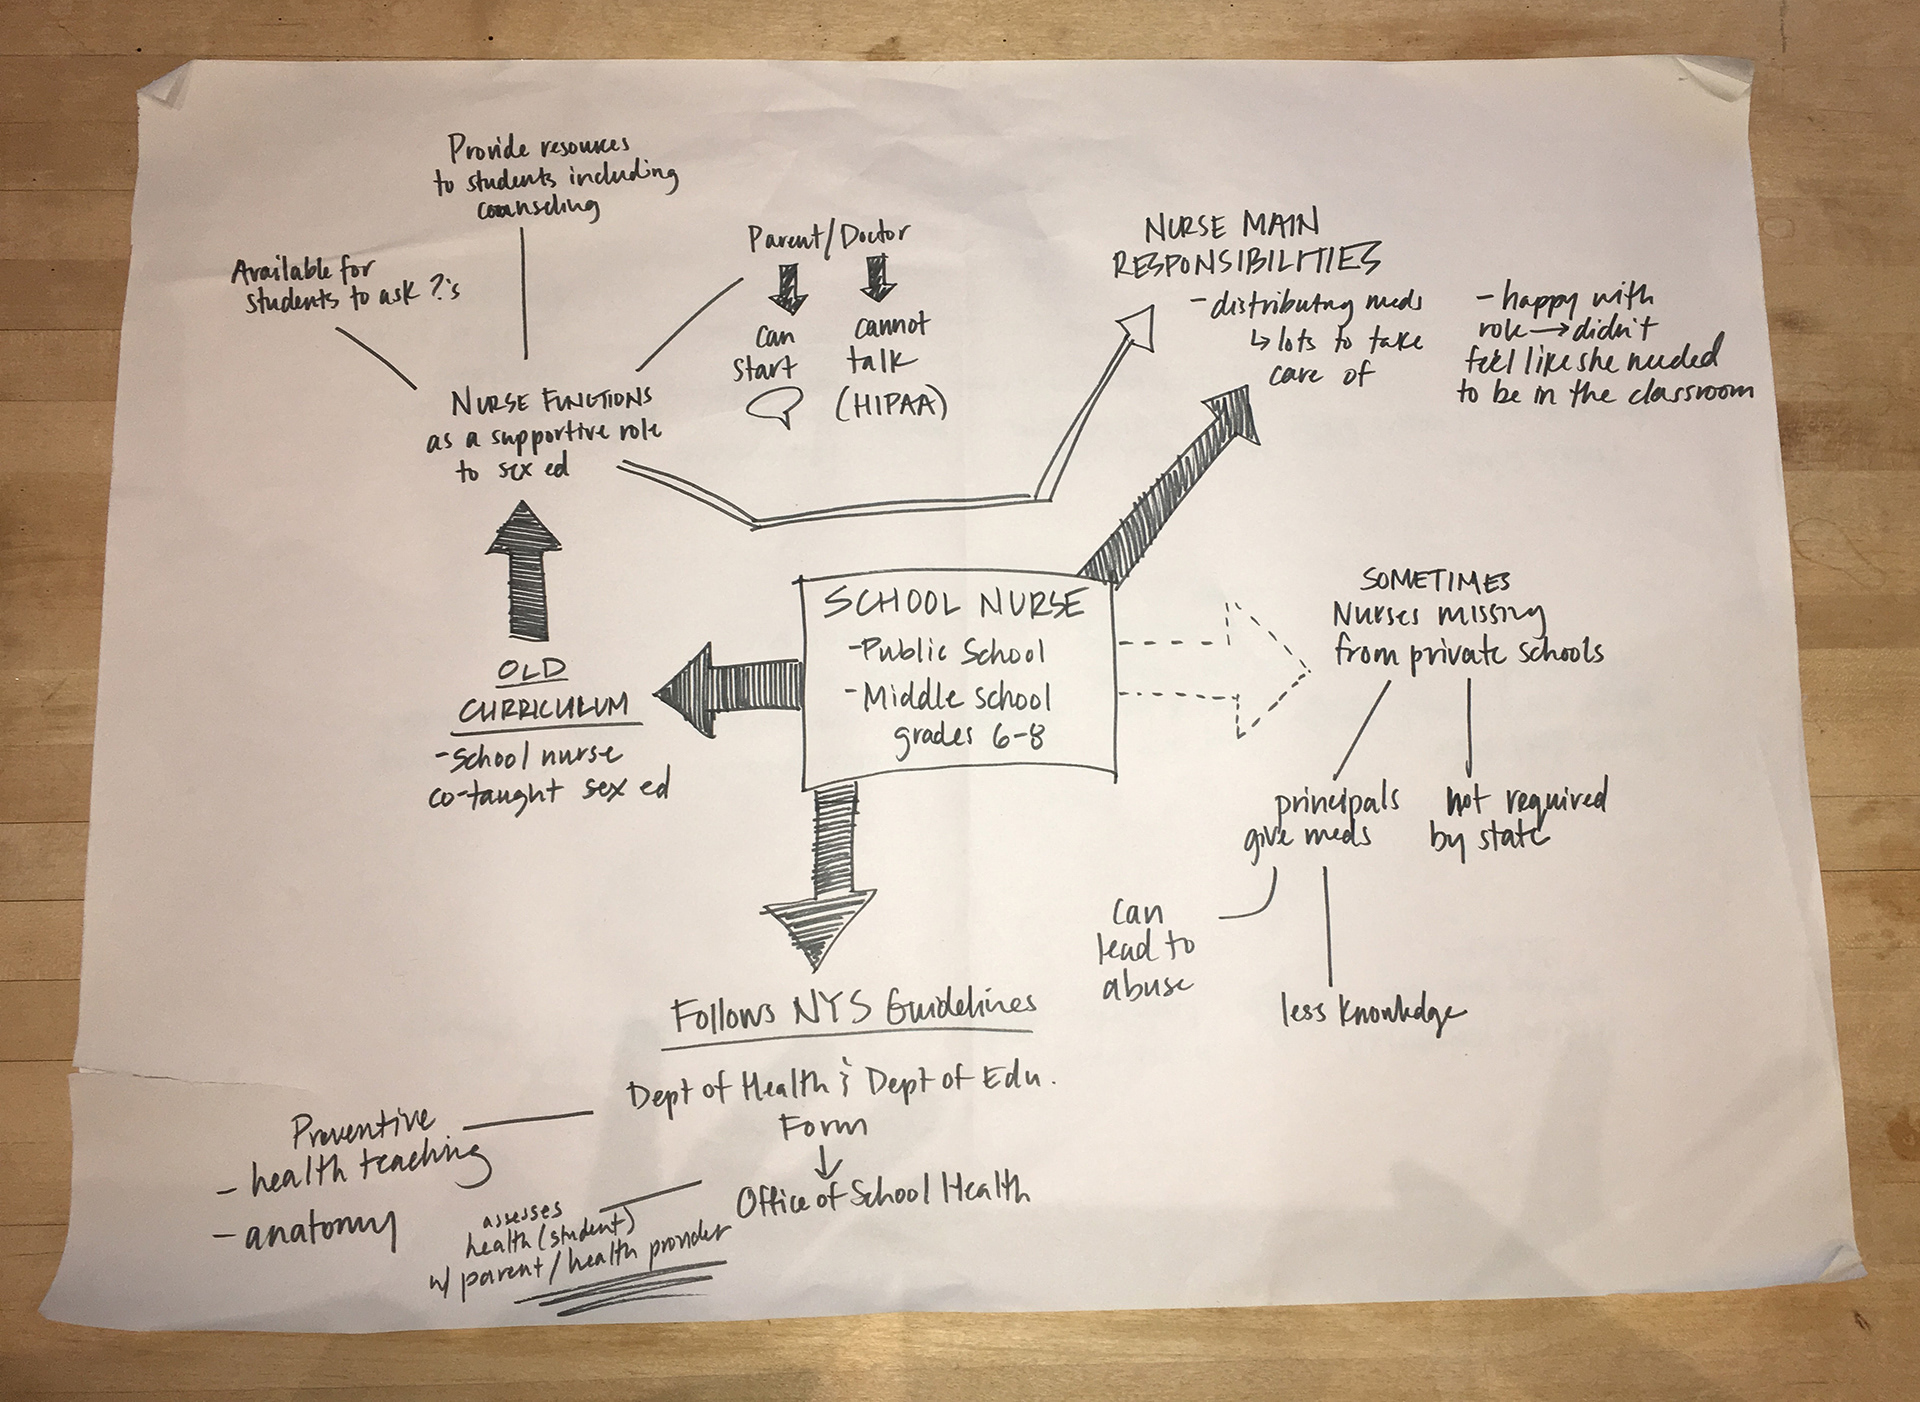 Provide resources
to students including
counseling
Available for
students to ask ?'s
Parent/Doctor
can
start
cannot
talk
(HIPAA)
NURSE FUNCTIONS
as a supportive role
to sex ed
NURSE MAIN
RESPONSIBILITIES
- distributing meds
↳ lots to take
care of
- happy with
role → didn't
feel like she needed
to be in the classroom
SCHOOL NURSE
- Public School
- Middle school
grades 6-8
OLD
CURRICULUM
- School nurse
co-taught sex ed
SOMETIMES
Nurses missing
from private schools
principals
give meds
not required
by state
can
lead to
abuse
less knowledge
Follows NYS Guidelines
Dept of Health & Dept of Edu.
Form
↓
Office of School Health
Preventive
- health teaching
- anatomy
assesses
health (student)
w/ parent/health provider